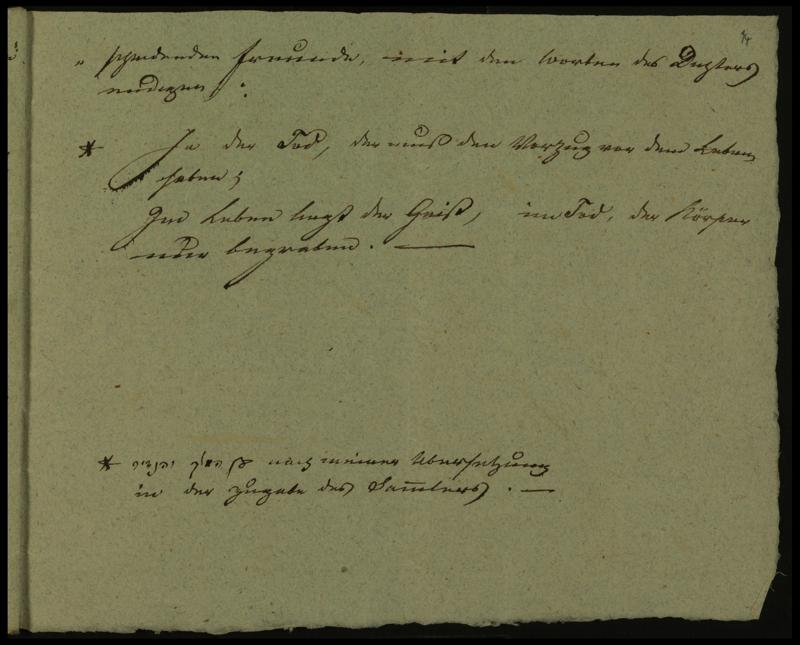 " scheidenden Freunde, mit den Worten des Dichters
endigen :
* Ja der Tod, der muß den Vorzug vor dem Leben
haben;
Im Leben liegt der Geist, im Tod, der Körper
nur begraben. —
* בן המלך והנזיר nach meiner Übersetzung
in der Zugabe des Sam̄lers. —